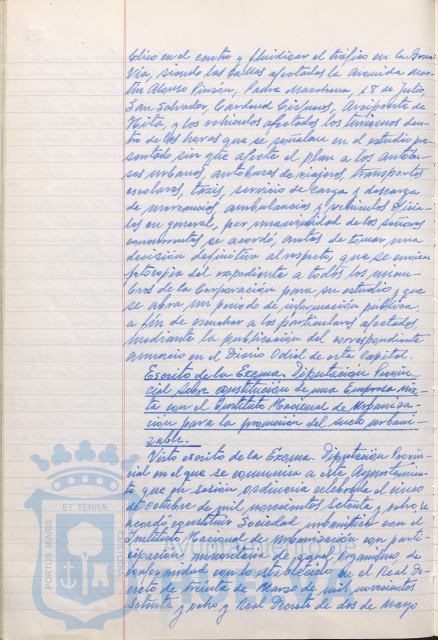 blico en el centro y fluidizar el tráfico en la Gran
Vía, siendo las calles afectadas la avenida Mar-
tín Alonso Pinzón, Padre Marchena, 18 de Julio,
San Salvador, Cardenal Cisneros, Arcipreste de
Hita, y los vehículos afectados los turismos den-
tro de las horas que se señalan en el estudio pre-
sentado sin que afecte el plan a los autobu-
ses urbanos, autobuses de viajeros, transportes
escolares, taxis, servicio de carga y descarga
de mercancías, ambulancias y vehículos oficia-
les en general, por unanimidad de los señores
concurrentes se acordó, antes de tomar una
decisión definitiva al respecto, que se envien
fotocopia del expediente a todos los miem-
bros de la Corporación para su estudio y que
se abra un periodo de información pública
a fin de escuchar a los particulares afectados,
mediante la publicación del correspondiente
anuncio en el Diario Odiel de esta Capital.
Escrito de la Excma. Diputación Provin-
cial sobre constitución de una Empresa mix-
ta con el Instituto Nacional de Urbaniza-
ción para la promoción del suelo urbani-
zable.
Visto escrito de la Excma. Diputación Provin-
cial en el que se comunica a este Ayuntamien-
to que en sesión ordinaria celebrada el cinco
de octubre de mil novecientos setenta y ocho, se
acordó constituir Sociedad urbanística con el
Instituto Nacional de Urbanización con parti-
cipación minoritaria de aquel organismo de
conformidad con lo establecido en el Real De-
creto de treinta de Marzo de mil novecientos
setenta y ocho y Real Decreto de dos de Mayo
PORTUS MARIS
ET TERRAE
CUSTODIA